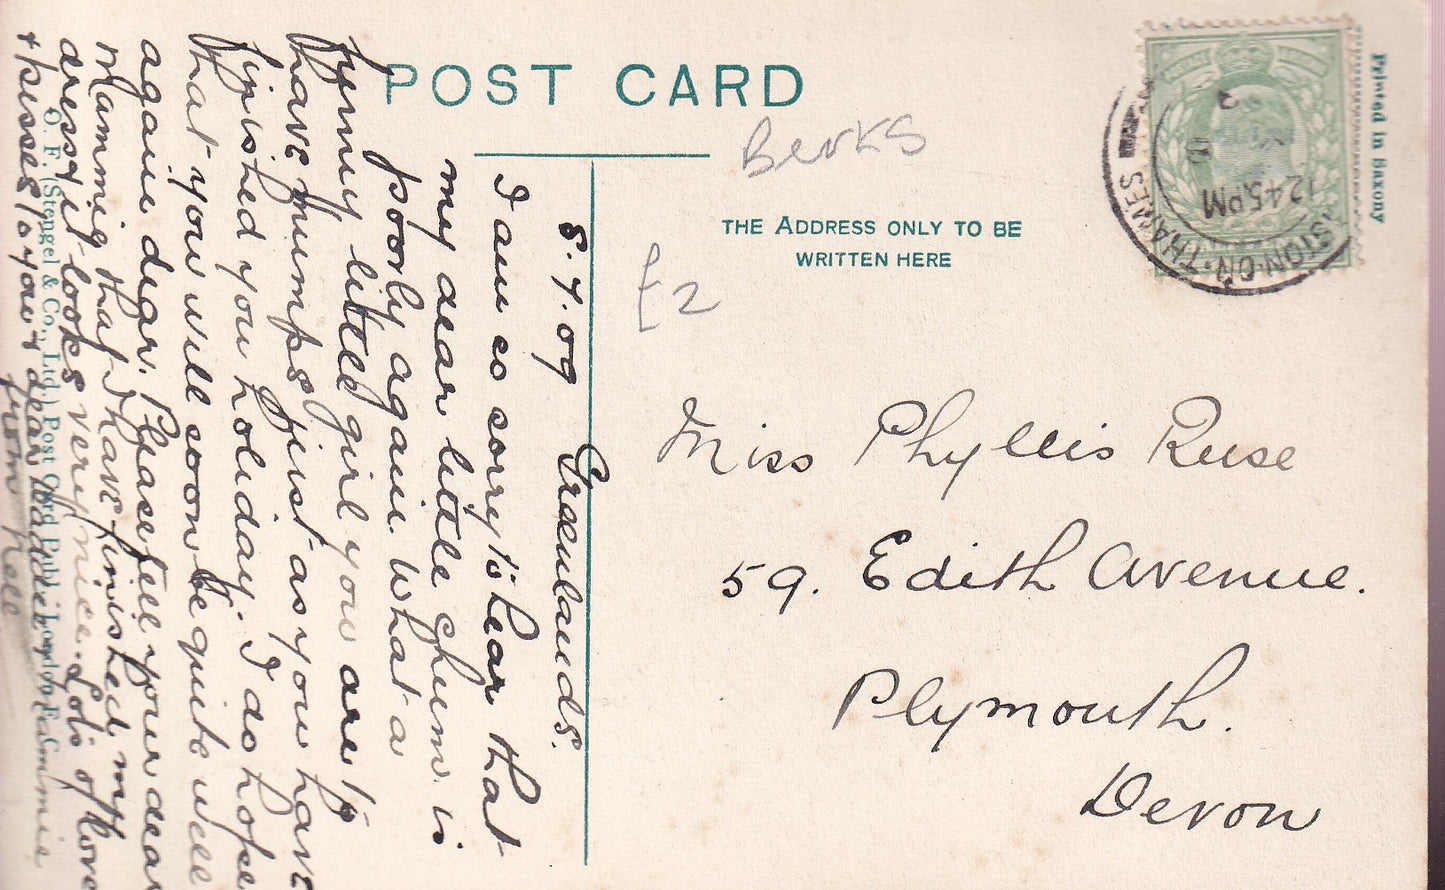 POST CARD
Berks
THE ADDRESS ONLY TO BE
WRITTEN HERE
£2
Printed in Saxony
TON-ON-THAMES
12 45 PM
Miss Phyllis Ruse
59. Edith Avenue.
Plymouth.
Devon
8.7.09 Greenlands.
I am so sorry to hear that
my dear little chum is
poorly again. What a
funny little girl you are to
have mumps just as you have
finished you holiday. I do hope
that you will soon be quite well
again dear. Please tell your dear
Mammie that I have finished my
dress & it looks very nice. Lots of love
& kisses to you & dear Daddie & Mammie
from Nell
O. F. (Stengel & Co., Ltd.) Post Card Publ., London E.C.